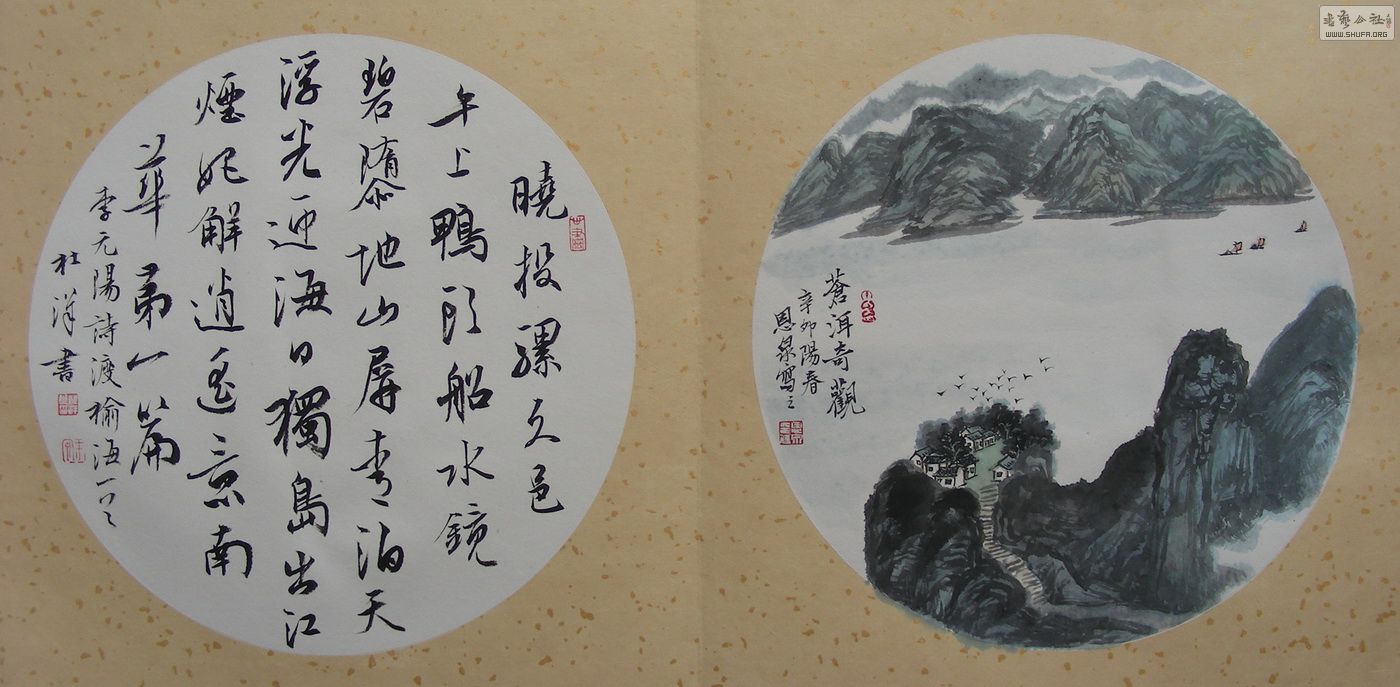 曉投騾久邑
午上鴨頭船水鏡
碧隳地山屏青泊天
浮光迎海日獨島出江
煙始解逍遙意南
華第一篇
李元陽詩渡榆海一首
杜洋書
蒼洱奇觀
辛卯陽春
恩泉寫之
書藝公社
WWW.SHUFA.ORG